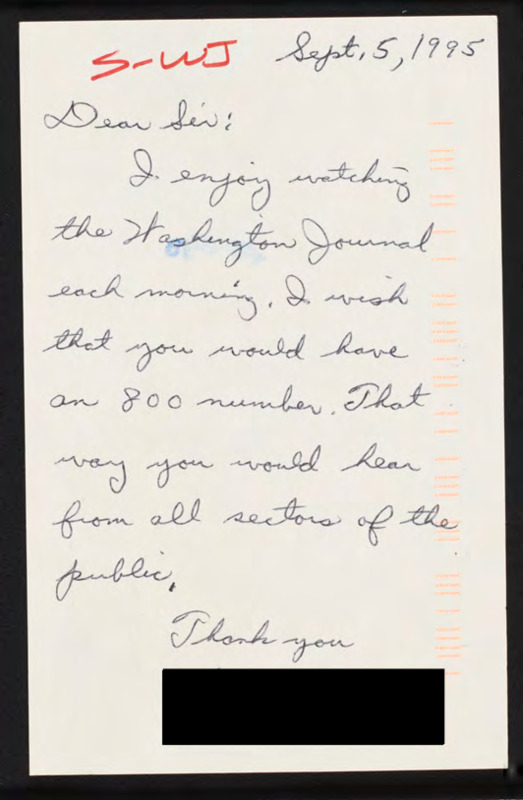 S-WJ Sept. 5, 1995
Dear Sir:
I enjoy watching
the Washington Journal
each morning. I wish
that you would have
an 800 number. That
way you would hear
from all sectors of the
public.
Thank you